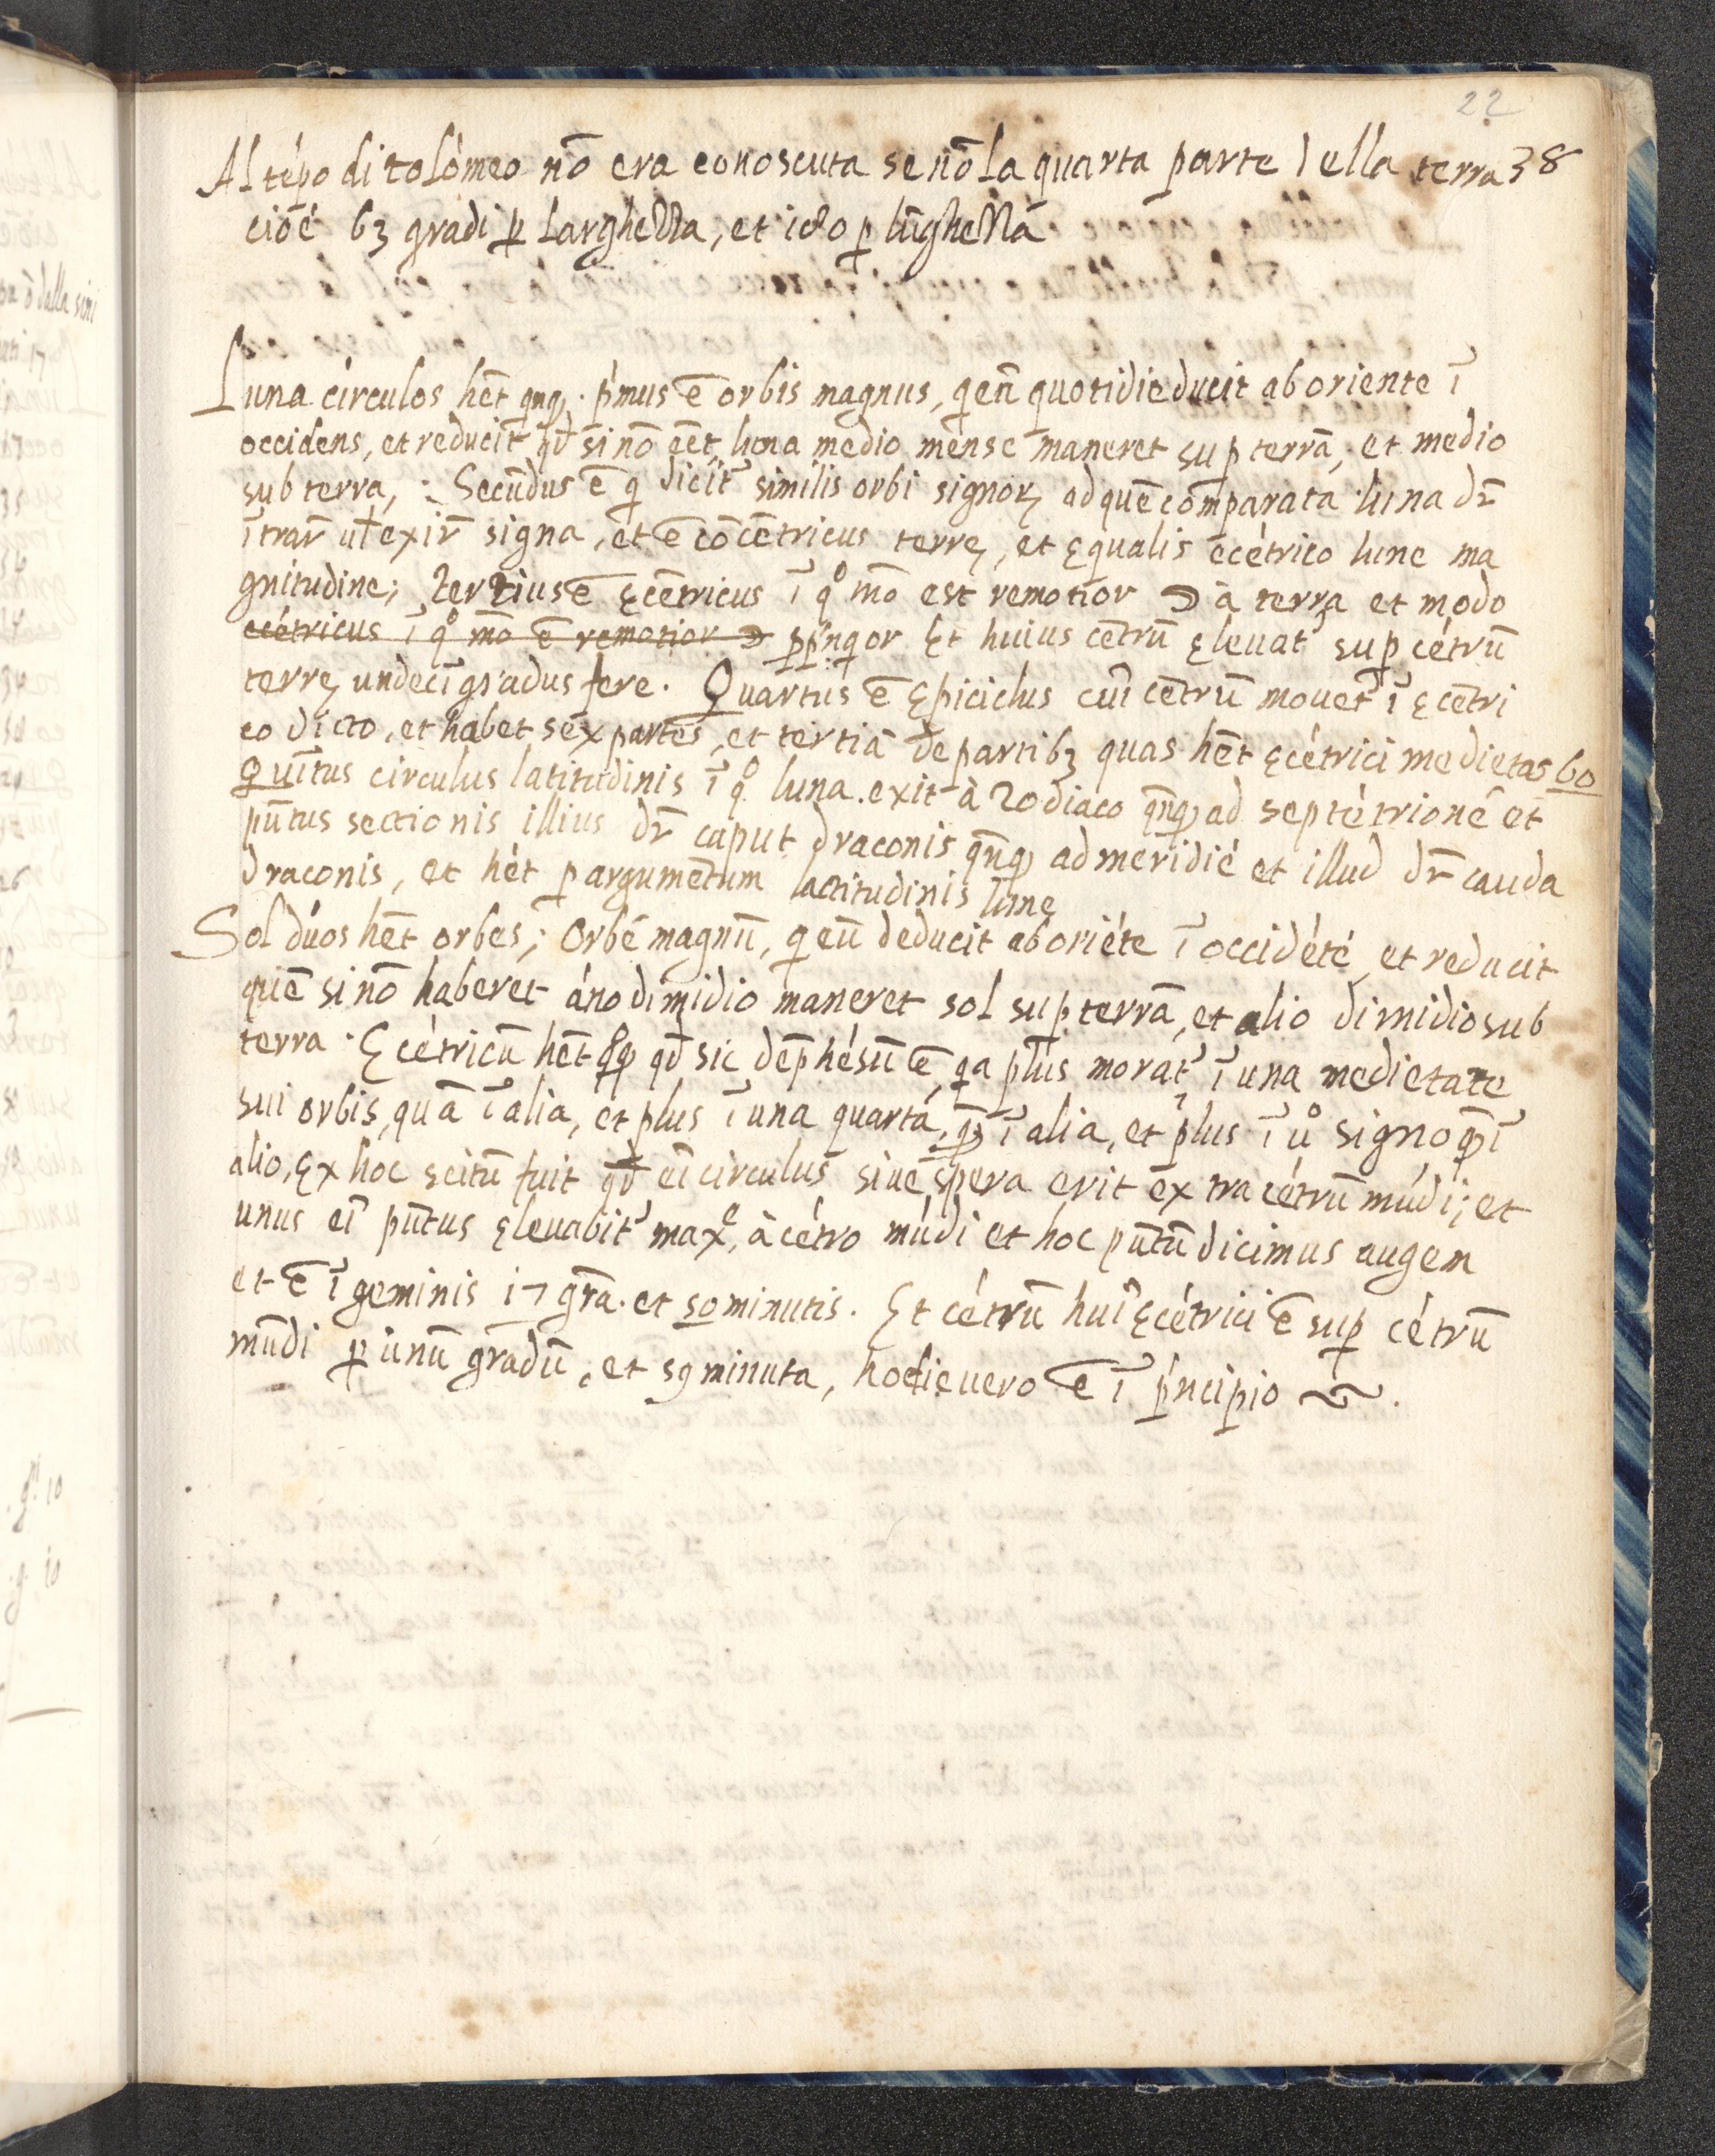 22
Al tépo di tolómeo nō era conoscuta se nō la quarta parte della terra 38
cioé 63 gradi ꝑ larghezza, et 180 ꝑ lūghezza
Luna circulos hēt qnqꝫ. pímus ē orbis magnus, q eū quotidie ducit ab oriente ī
occidens, et reducit qđ si nō eēt, luna medio mense maneret suꝑ terrā, et medio
sub terra, : Secūdus ē q dicit᷑ similis orbi signoꝝ ad quē comparata luna dr̄
ītrar̄ ut exir̄ signa, et ē cōcētricus terrę, et ęqualis ecétrico lune ma
gnitudine; tertius ē ęcētricus ī qº mō est remotior à terra et modo
ecétricus ī qº mō ē remotior ꝓpínqor Et huius cētrū ęleuat᷑ suꝑ cétrū
terrę undecī gradus fere. Quartus ē Epiciclus cuī cētrū mouet᷑ ī ęcētri
co dicto, et habet sex partes, et tertiā de partibꝫ quas hēt ęcétrici medietas 60
Quītus circulus latitudinis ī qº luna exit à zodiaco qn̄qꝫ ad septétrionē et
pūtus sectionis illius dr̄ caput draconis qn̄qꝫ ad meridié et illud dr̄ cauda
draconis, et hét ꝑ argumētum latitudinis lune
Sol dúos hēt orbes; Orbē magnū, q eū deducit ab oriéte ī occidété, et reducit
quē si nō haberet áno dimidio maneret sol suꝑ terrā, et alio dimidio sub
terra. Ecétricū hēt qđ sic dep̄hésū ē, qa plus morat᷑ ī una medietate
sui orbis, quā ī alia, et plus ī una quarta, qꝫ ī alia, et plus ī uº signo qꝫ ī
alio, Ex hoc scitū fuit qđ eī circulus siue spera erit extra cétrū múdi; et
unus eī pūtus ęleuabit᷑ maxᵉ, à cétro múdi et hoc pūtū dicimus augem
et ē ī geminis 17 gra. et 50 minutis. Et cétrū huī ęcétrici ē suꝑ cétrū
mūdi ꝑ unū gradū, et 59 minuta, hodie uero ē ī príncipio